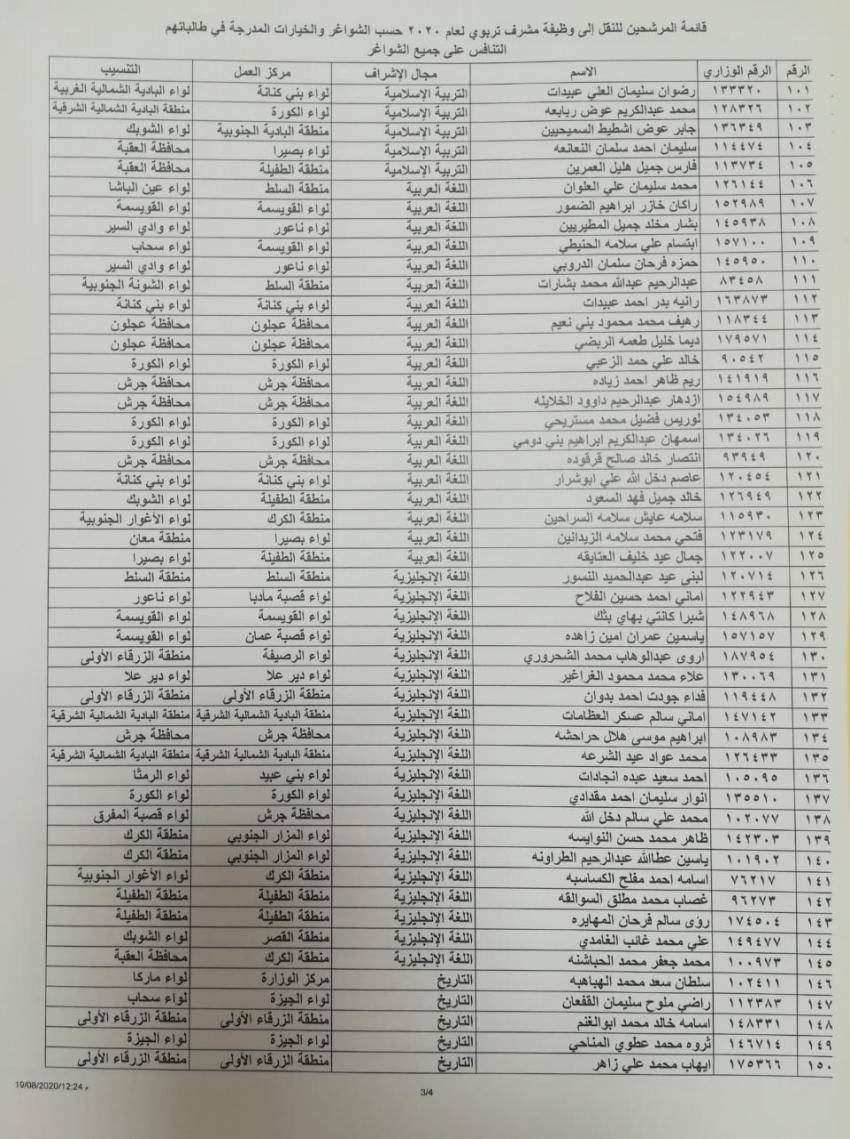 قائمة المرشحين للنقل إلى وظيفة مشرف تربوي لعام ٢٠٢٠ حسب الشواغر والخيارات المدرجة في طالباتهم
التنافس على جميع الشواغر
الرقم الرقم الوزاري الاسم مجال الإشراف مركز العمل التنسيب
١٠١ ١٣٣٣٢٠ رضوان سليمان العلي عبيدات التربية الإسلامية لواء بني كنانة لواء البادية الشمالية الغربية
١٠٢ ١٢٨٣٢٦ محمد عبدالكريم عوض ربابعه التربية الإسلامية لواء الكورة منطقة البادية الشمالية الشرقية
١٠٣ ١٣٦٣٤٩ جابر عوض اشطيط السميحيين التربية الإسلامية منطقة البادية الجنوبية لواء الشوبك
١٠٤ ١١٤٤٧٤ سليمان احمد سلمان النعانعه التربية الإسلامية لواء بصيرا محافظة العقبة
١٠٥ ١١٣٧٣٤ فارس جميل هليل العمرين التربية الإسلامية منطقة الطفيلة محافظة العقبة
١٠٦ ١٢٦١٤٤ محمد سليمان علي العلوان اللغة العربية منطقة السلط لواء عين الباشا
١٠٧ ١٥٢٩٨٩ راكان خازر ابراهيم الضمور اللغة العربية لواء القويسمة لواء القويسمة
١٠٨ ١٤٥٩٣٨ بشار مخلد جميل المطيريين اللغة العربية لواء ناعور لواء وادي السير
١٠٩ ١٥٧١٠٠ ابتسام علي سلامه الحنيطي اللغة العربية لواء القويسمة لواء سحاب
١١٠ ١٤٥٩٥٠ حمزه فرحان سلمان الدروبي اللغة العربية لواء ناعور لواء وادي السير
١١١ ٨٣٤٥٨ عبدالرحيم عبدالله محمد بشارات اللغة العربية منطقة السلط لواء الشونة الجنوبية
١١٢ ١٦٣٨٧٣ رانيه بدر احمد عبيدات اللغة العربية لواء بني كنانة لواء بني كنانة
١١٣ ١١٨٣٤٤ رهيف محمد محمود بني نعيم اللغة العربية محافظة عجلون محافظة عجلون
١١٤ ١٧٩٥٧١ ديما خليل طعمه الربضي اللغة العربية محافظة عجلون محافظة عجلون
١١٥ ٩٠٥٤٢ خالد علي حمد الزعبي اللغة العربية لواء الكورة لواء الكورة
١١٦ ١٤١٩١٩ ريم ظاهر احمد زياده اللغة العربية محافظة جرش محافظة جرش
١١٧ ١٥٤٩٨٩ ازدهار عبدالرحيم داوود الخلايله اللغة العربية محافظة جرش محافظة جرش
١١٨ ١٣٤٠٥٣ لوريس فضيل محمد مستريحي اللغة العربية لواء الكورة لواء الكورة
١١٩ ١٣٤٠٢٦ اسمهان عبدالكريم ابراهيم بني دومي اللغة العربية لواء الكورة لواء الكورة
١٢٠ ٩٣٩٤٩ انتصار خالد صالح قرقوده اللغة العربية محافظة جرش محافظة جرش
١٢١ ١٢٠٤٥٤ عاصم دخل الله علي ابوشرار اللغة العربية لواء بني كنانة لواء بني كنانة
١٢٢ ١٢٦٩٤٩ خالد جميل فهد السعود اللغة العربية منطقة الطفيلة لواء الشوبك
١٢٣ ١١٥٩٣٠ سلامه عايش سلامه السراحين اللغة العربية منطقة الكرك لواء الأغوار الجنوبية
١٢٤ ١٢٣١٧٩ فتحي محمد سلامه الزيدانين اللغة العربية لواء بصيرا منطقة معان
١٢٥ ١٢٢٠٠٧ جمال عيد خليف العتايقه اللغة العربية منطقة الطفيلة لواء بصيرا
١٢٦ ١٢٠٧١٤ لبنى عيد عبدالحميد النسور اللغة الإنجليزية منطقة السلط منطقة السلط
١٢٧ ١٢٢٩٤٣ اماني احمد حسين الفلاح اللغة الإنجليزية لواء قصبة مادبا لواء ناعور
١٢٨ ١٤٨٩٦٨ شبرا كانتي بهاي بثك اللغة الإنجليزية لواء القويسمة لواء القويسمة
١٢٩ ١٥٧١٥٧ ياسمين عمران امين زاهده اللغة الإنجليزية لواء قصبة عمان لواء القويسمة
١٣٠ ١٨٧٩٥٤ اروى عبدالوهاب محمد الشحروري اللغة الإنجليزية لواء الرصيفة منطقة الزرقاء الأولى
١٣١ ١٣٠٠٦٩ علاء محمد محمود الغراغير اللغة الإنجليزية لواء دير علا لواء دير علا
١٣٢ ١١٩٤٤٨ فداء جودت احمد بدوان اللغة الإنجليزية منطقة الزرقاء الأولى منطقة الزرقاء الأولى
١٣٣ ١٤٧١٤٢ اماني سالم عسكر العظامات اللغة الإنجليزية منطقة البادية الشمالية الشرقية منطقة البادية الشمالية الشرقية
١٣٤ ١٠٨٩٨٣ ابراهيم موسى هلال حراحشه اللغة الإنجليزية محافظة جرش محافظة جرش
١٣٥ ١٢٦٤٣٣ محمد عواد عيد الشرعه اللغة الإنجليزية منطقة البادية الشمالية الشرقية منطقة البادية الشمالية الشرقية
١٣٦ ١٠٥٠٩٥ احمد سعيد عبده انجادات اللغة الإنجليزية لواء بني عبيد لواء الرمثا
١٣٧ ١٣٥٥١٠ انوار سليمان احمد مقدادي اللغة الإنجليزية لواء الكورة لواء الكورة
١٣٨ ١٠٢٠٧٧ محمد علي سالم دخل الله اللغة الإنجليزية محافظة جرش لواء قصبة المفرق
١٣٩ ١٤٢٣٠٣ ظاهر محمد حسن النوايسه اللغة الإنجليزية لواء المزار الجنوبي منطقة الكرك
١٤٠ ١٠١٩٠٢ ياسين عطاالله عبدالرحيم الطراونه اللغة الإنجليزية لواء المزار الجنوبي منطقة الكرك
١٤١ ٧٦٢١٧ اسامه احمد مفلح الكساسبه اللغة الإنجليزية منطقة الكرك لواء الأغوار الجنوبية
١٤٢ ٩٦٢٧٣ غصاب محمد مطلق السوالقه اللغة الإنجليزية منطقة الطفيلة منطقة الطفيلة
١٤٣ ١٧٤٥٠٤ رؤى سالم فرحان المهايره اللغة الإنجليزية منطقة الطفيلة منطقة الطفيلة
١٤٤ ١٤٩٤٧٧ علي محمد غائب الغامدي اللغة الإنجليزية منطقة القصر لواء الشوبك
١٤٥ ١٠٠٩٧٣ محمد جعفر محمد الحباشنه اللغة الإنجليزية منطقة الكرك محافظة العقبة
١٤٦ ١٠٢٤١١ سلطان سعد محمد الهباهبه التاريخ مركز الوزارة لواء ماركا
١٤٧ ١١٢٣٨٣ راضي ملوح سليمان القفعان التاريخ لواء الجيزة لواء سحاب
١٤٨ ١٤٨٣٣١ اسامه خالد محمد ابوالغنم التاريخ منطقة الزرقاء الأولى منطقة الزرقاء الأولى
١٤٩ ١٤٦٧١٤ ثروه محمد عطوي المناحي التاريخ لواء الجيزة لواء الجيزة
١٥٠ ١٧٥٣٦٦ ايهاب محمد علي زاهر التاريخ منطقة الزرقاء الأولى منطقة الزرقاء الأولى
19/08/2020/12:24 م
3/4